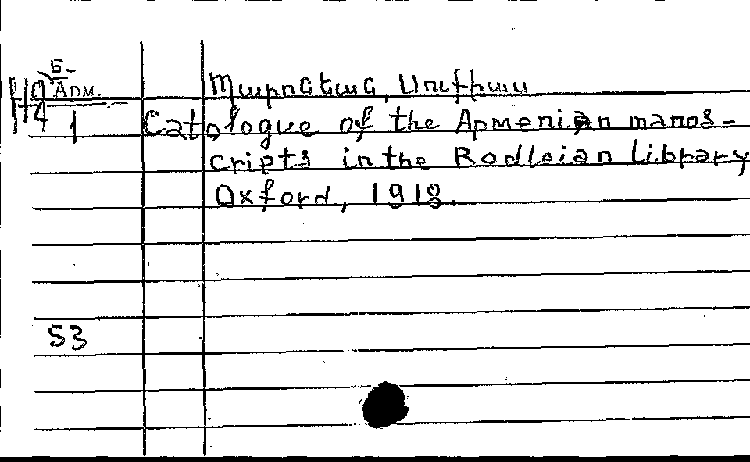 Б-
Арм.
1
Պարոնեան, Սուքիաս
Catalogue of the Armenian manos-
cripts in the Bodleian Library
Oxford, 1918.
53